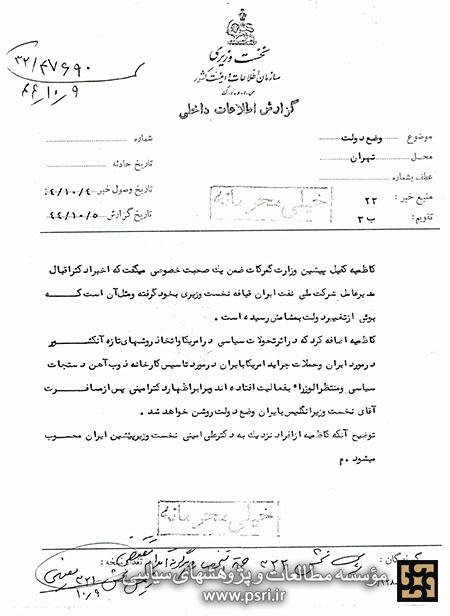 نخست وزیری
سازمان اطلاعات و امنیت کشور
س.ا.و.ا.ک
گزارش اطلاعات داخلی
۳۲/۴۷۶۹۰
۴۴/۱۰/۹
موضوع : وضع دولت
شماره :
محل : تهران
تاریخ حادثه
عطف بشماره :
تاریخ وصول خبر ۴/۱۰/۴:
منبع خبر : ۲۳
تاریخ گزارش ۴۴/۱۰/۵
تقویم : ب ۳
خیلی محرمانه
کاظمیه کفیل پیشین وزارت گمرکات ضمن یک صحبت خصوصی میگفت که اخیرا دکتراقبال
مدیرعامل شرکت ملی نفت ایران قیافه نخست وزیری بخود گرفته و مثل آن است کـــه
بوئی از تغییر دولت بمشامش رسیده است .
کاظمیه اضافه کرد که در اثر تحولات سیاسی در امریکا و اتخاذ روشهای تازه آنکشـــور
در مورد ایران و حملات جراید امریکا بایران در مورد تاسیس کارخانه ذوب آهن دستجات
سیاسی و منتظرالوزراء بفعالیت افتاده اند و بر ابراظهار دکترامینی پس از مسافـــرت
آقای نخست وزیر انگلیس بایران وضع دولت روشن خواهد شد .
توضیح آنکه کاظمیه از افراد نزدیک به دکترعلی امینی نخست وزیر پیشین ایران محسوب
میشود . م
خیلی محرمانه
گیرندگان :
۳۲۱
۱۰/۹
مؤسسه مطالعات و پژوهشهای سیاسی
www.psri.ir